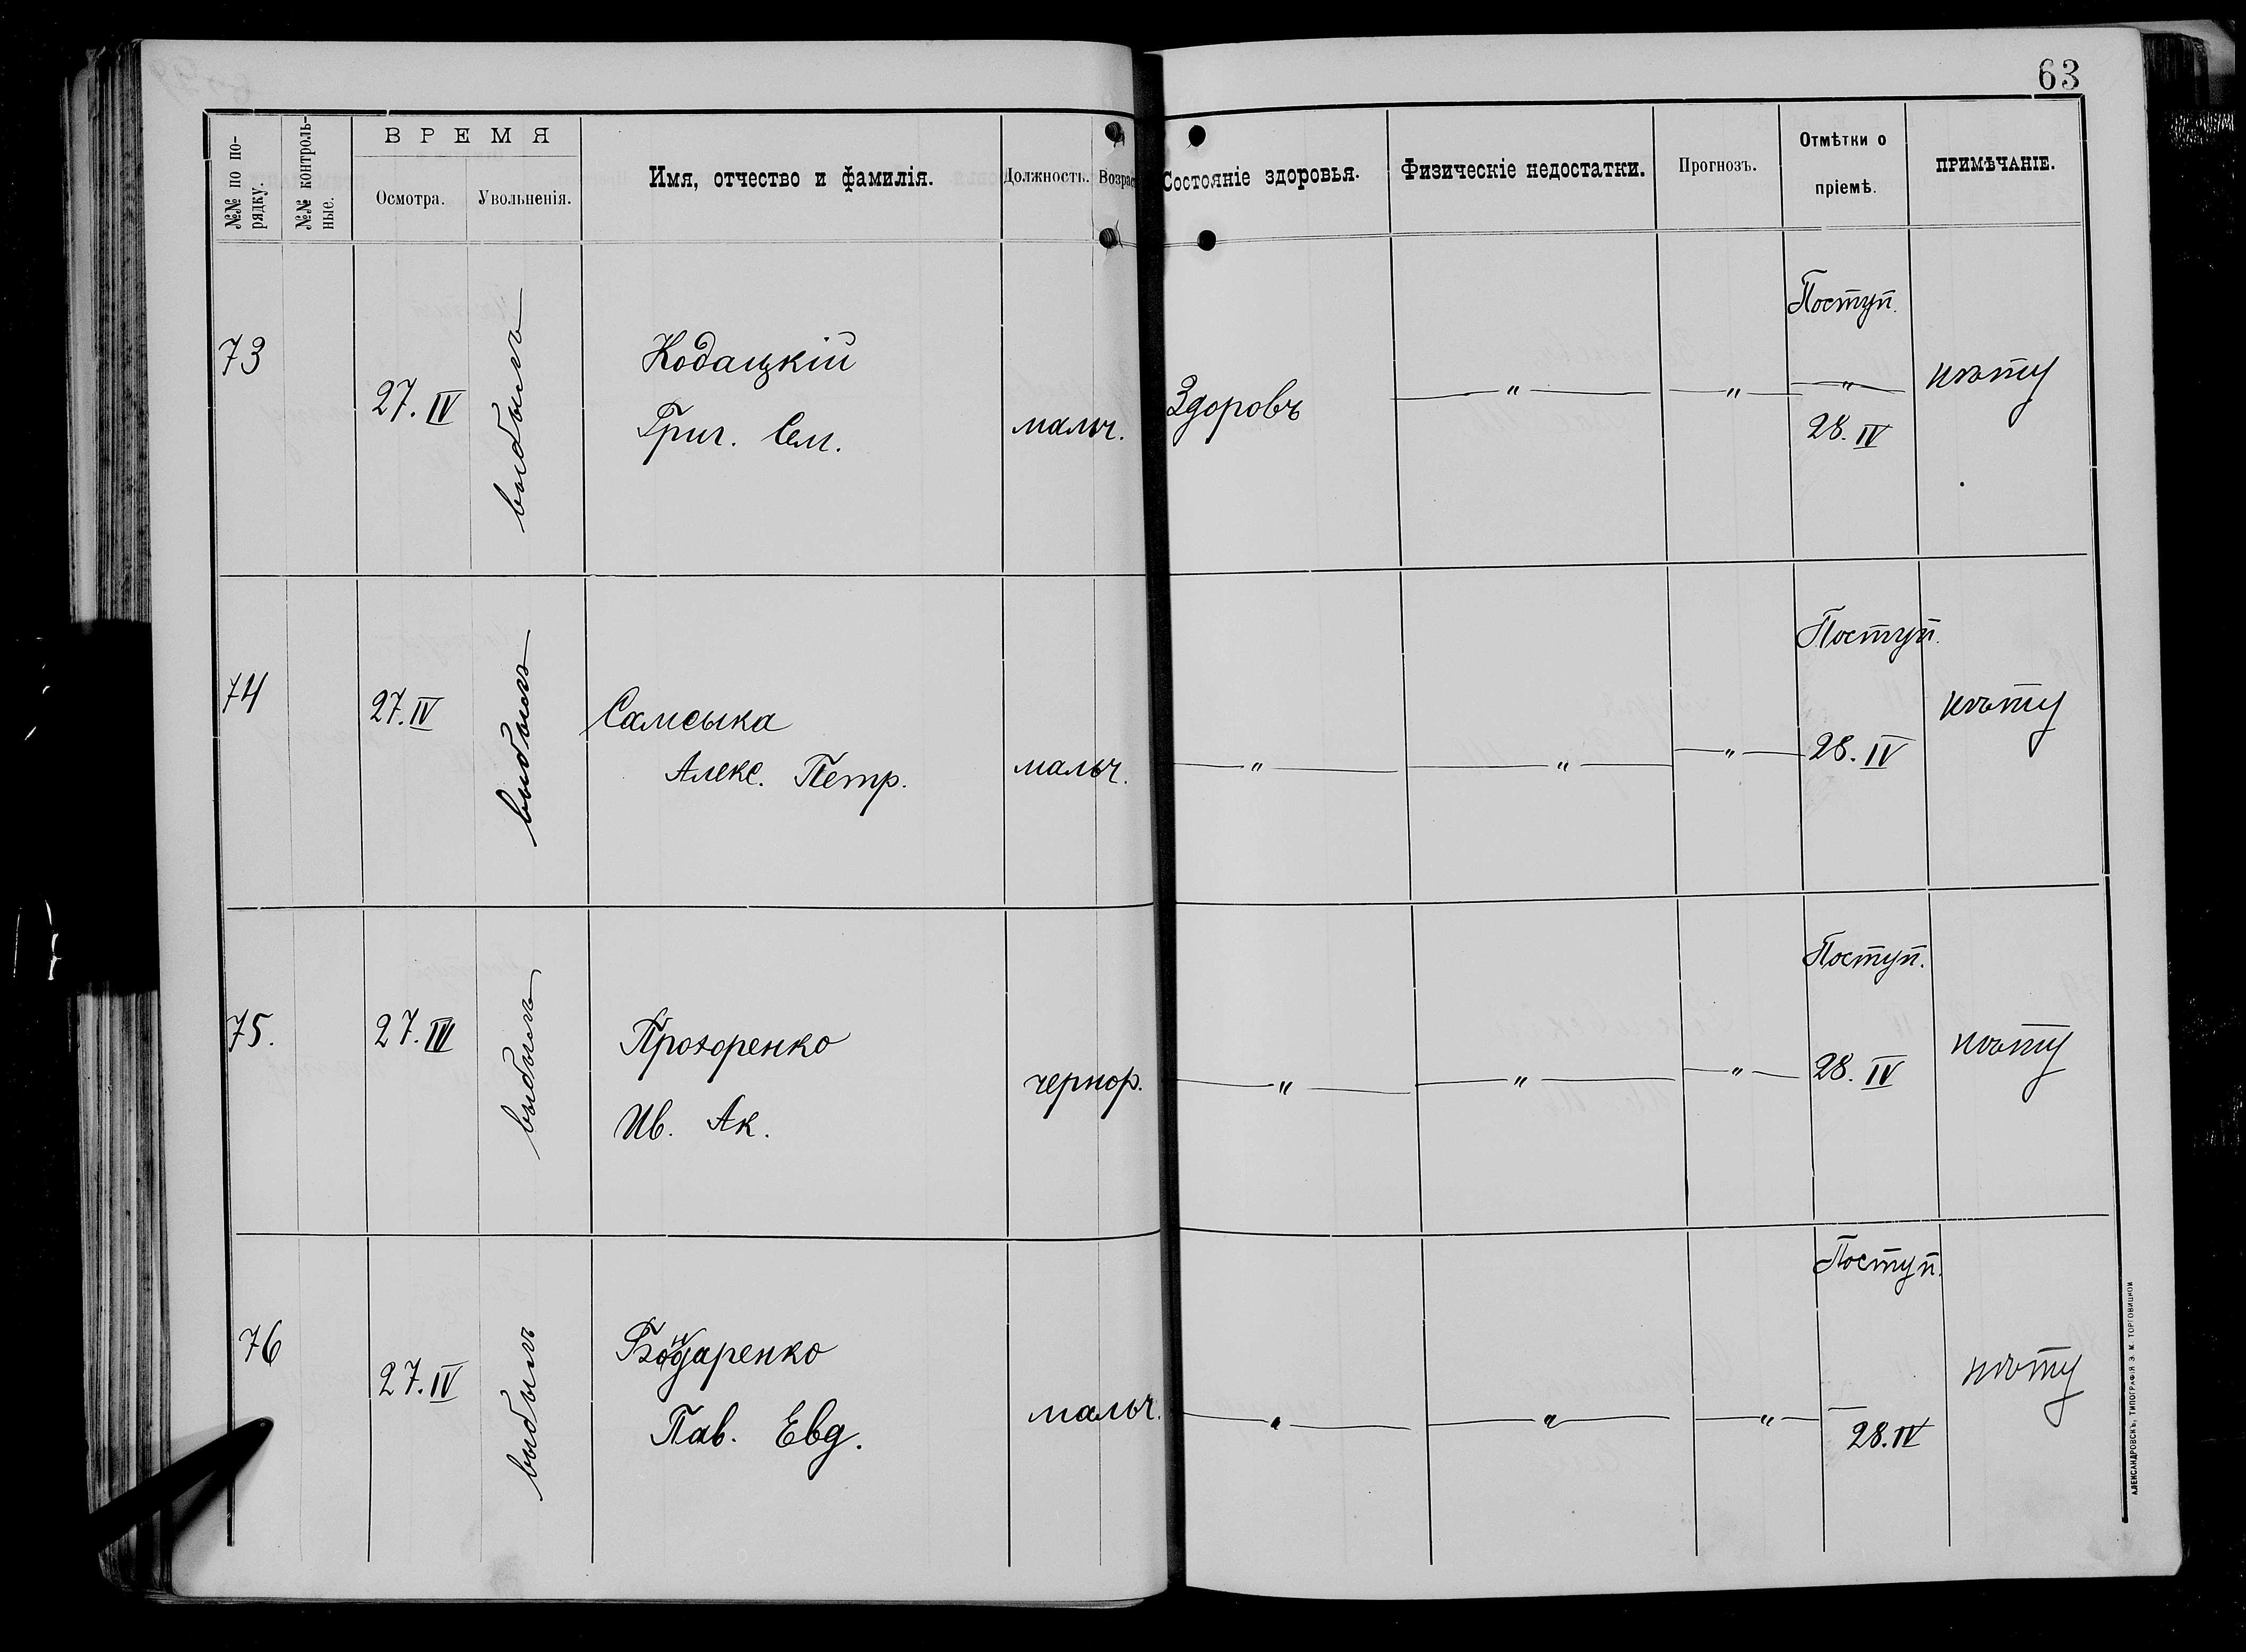 63
№№ по по-
рядку.
№№ контроль-
ные.
ВРЕМЯ
Осмотра.
Увольненія.
Имя, отчество и фамилія.
Должность.
Возрас
Состояніе здоровья.
Физическіе недостатки.
Прогнозъ.
Отмѣтки о
пріемѣ.
ПРИМѢЧАНІЕ.
73
27. IV
выбылъ
Кодацкій
Григ. Сем.
мальч.
Здоровъ
— " —
— " —
Поступ.
— " —
28. IV
нѣту
74
27. IV
выбылъ
Самсыка
Алекс. Петр.
мальч.
— " —
— " —
— " —
Поступ.
28. IV
нѣту
75.
27. IV
выбылъ
Прохоренко
Ив. Ак.
чернор.
— " —
— " —
— " —
Поступ.
28. IV
нѣту
76
27. IV
выбылъ
Бондаренко
Пав. Евд.
мальч.
— " —
— " —
— " —
Поступ.
28. IV
нѣту
АЛЕКСАНДРОВСКЪ, ТИПОГРАФІЯ Э. М. ТОРГОВИЦКОЙ